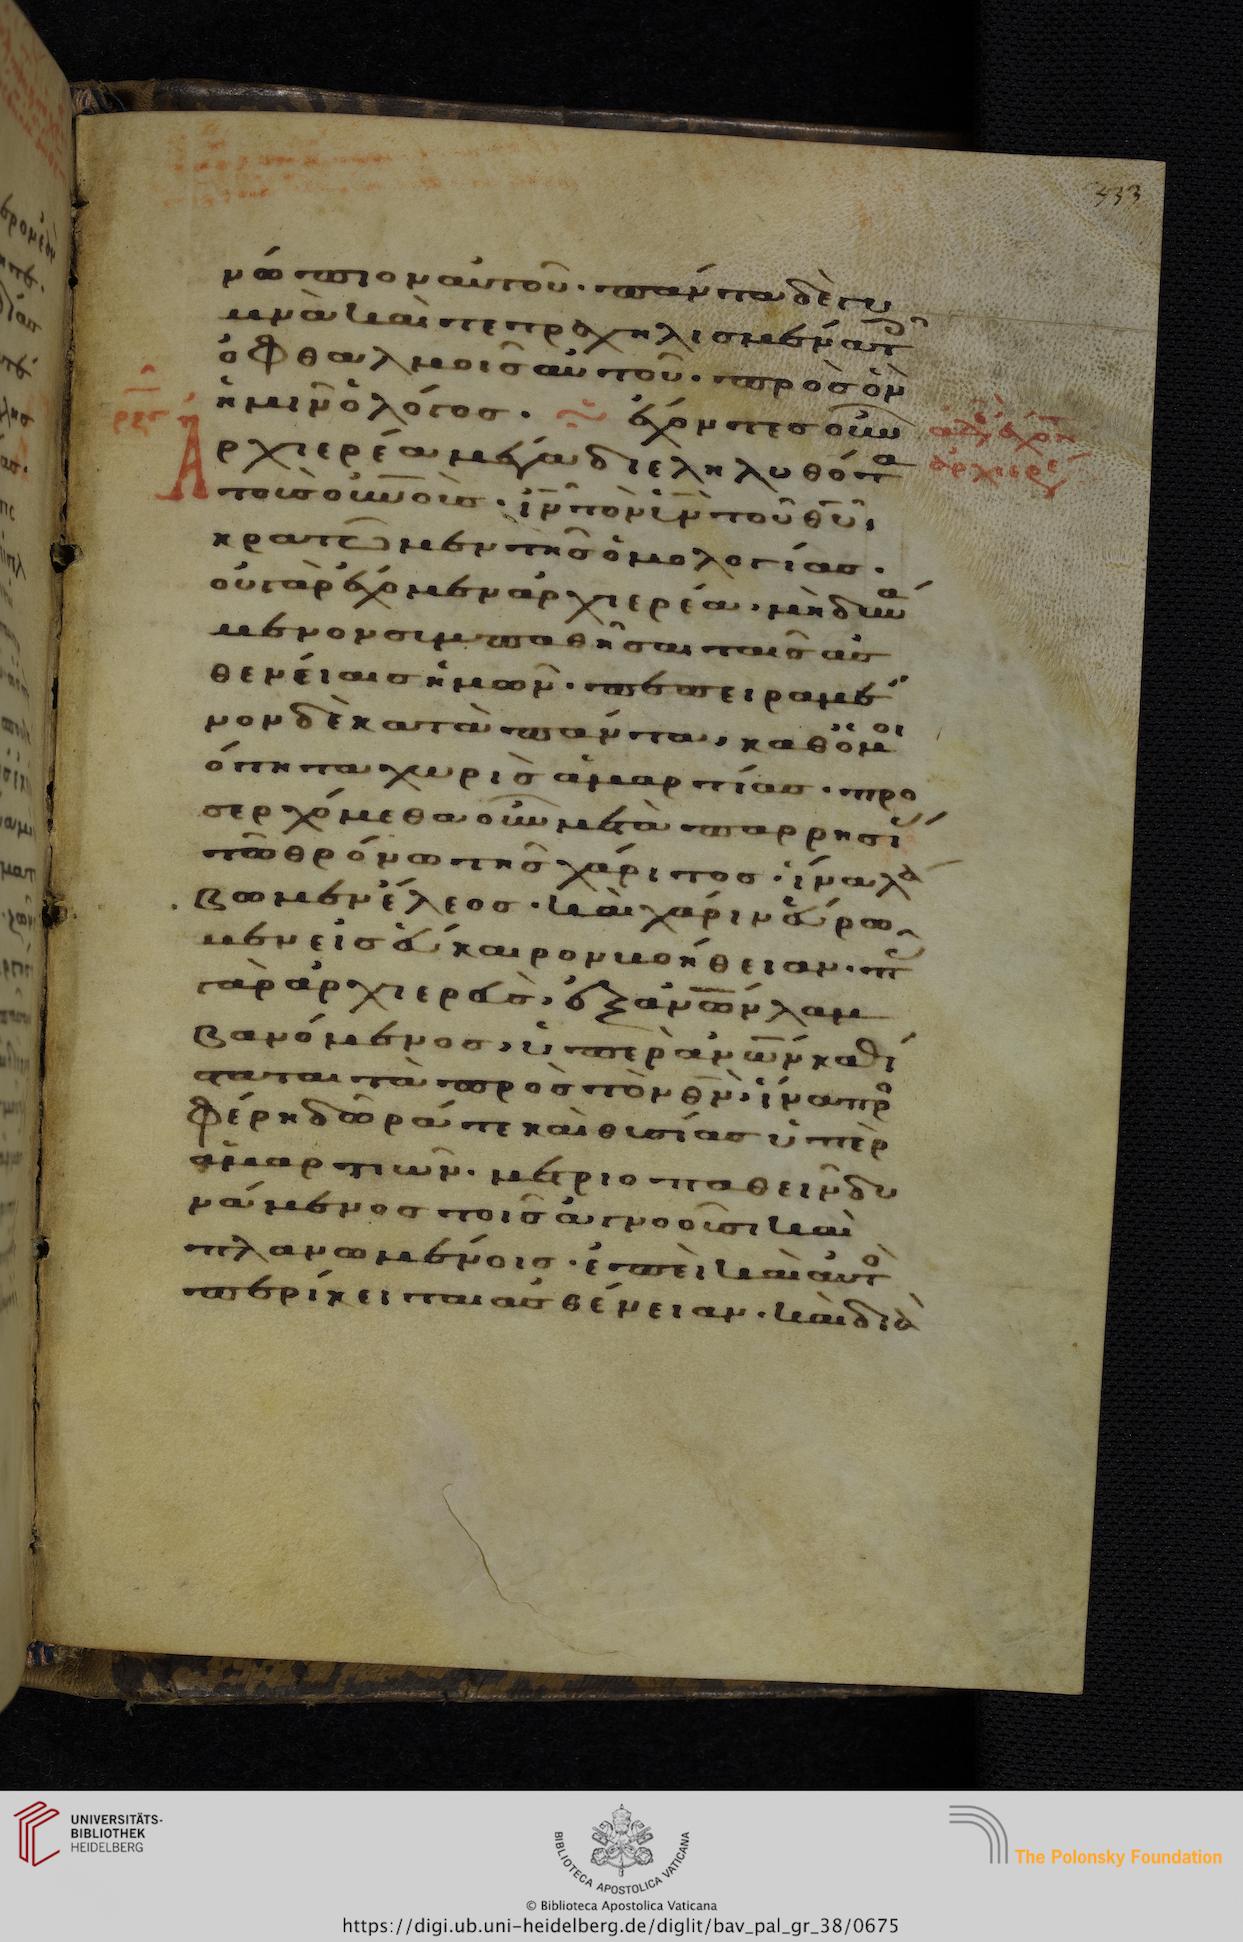 333
νώπιον αὐτοῦ· πάντα δὲ γυ
μνὰ καὶ τετραχηλισμένα τ
ὀφθαλμοῖς αὐτοῦ· πρὸς ὃν
ἡμῖν ὁ λόγος· ἔχοντες οὖν
ἀρχιερέα μέγαν διεληλυθότα
τοὺς οὐνοὺς· ἰν τὸν ὑν τοῦ θυ,
κρατῶμεν τῆς ὁμολογίας·
οὐ γὰρ ἔχομεν ἀρχιερέα, μὴ δυνά
μενον συμπαθῆσαι ταῖς ἀσ
θενείαις ἡμῶν· πεπειραμέ
νον δὲ κατὰ πάντα, καθ ὁμοι
ότητα χωρὶς ἁμαρτίας· προ
σερχόμεθα οὖν μετὰ παρρησί
τῶ θρόνω τῆς χάριτος· ἵνα λά
βωμεν ἔλεος· καὶ χάριν εὕρω
μεν εἰς εὔκαιρον βοήθειαν· π
γὰρ ἀρχιερεὺς, ἐξ ἀνων λαμ
βανόμενος, ὑπὲρ ἀνων καθί
σταται τὰ πρὸς τὸν θν, ἵνα προ
φέρη δῶρά τε καὶ θυσίας ὑπὲρ
ἁμαρτιῶν· μετριοπαθεῖν δυ
νάμενος τοῖς ἀγνοοῦσι καὶ
πλανωμένοις· ἐπεὶ καὶ αὐτὸ
περίκειται ἀσθένειαν· καὶ διὰ
UNIVERSITÄTS-
BIBLIOTHEK
HEIDELBERG
BIBLIOTECA APOSTOLICA VATICANA
The Polonsky Foundation
© Biblioteca Apostolica Vaticana
https://digi.ub.uni-heidelberg.de/diglit/bav_pal_gr_38/0675